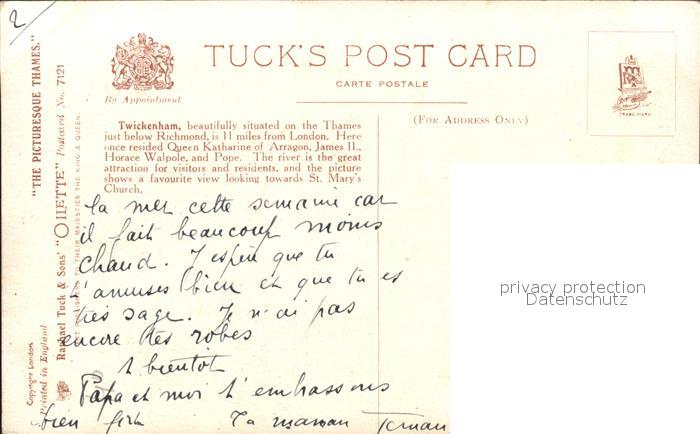 2
TUCK'S POST CARD
CARTE POSTALE
By Appointment
(FOR ADDRESS ONLY)
TRADE MARK
"THE PICTURESQUE THAMES."
Raphael Tuck & Sons' "OILETTE" Postcard No. 7121
TO THEIR MAJESTIES THE KING & QUEEN.
Copyright London
Printed in England
Twickenham, beautifully situated on the Thames
just below Richmond, is 11 miles from London. Here
once resided Queen Katharine of Arragon, James II.,
Horace Walpole, and Pope. The river is the great
attraction for visitors and residents, and the picture
shows a favourite view looking towards St. Mary's
Church.
la mer cette semaine car
il fait beaucoup moins
chaud. J'espère que tu
t'amuses bien et que tu es
très sage. Je n'ai pas
encore tes robes
A bientôt
Papa et moi t'embrassons
bien fort Ta maman
privacy protection
Datenschutz